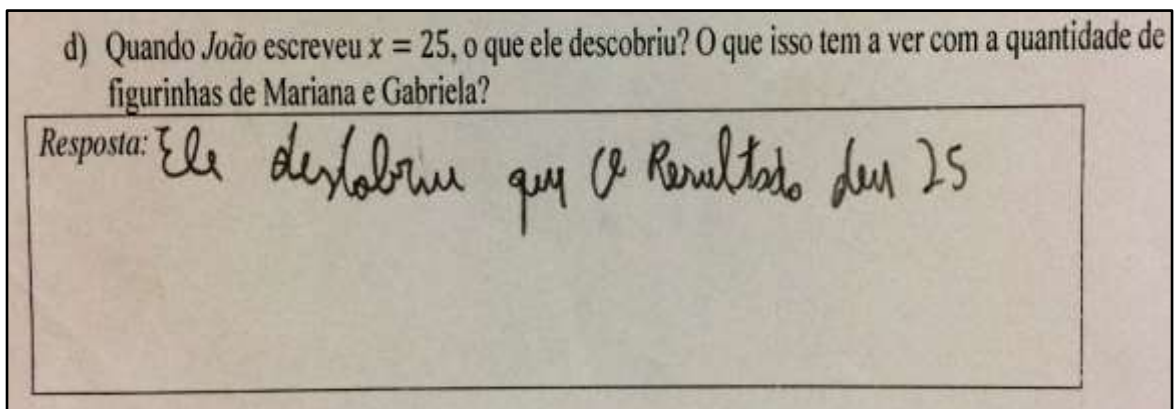 d) Quando João escreveu x = 25, o que ele descobriu? O que isso tem a ver com a quantidade de
figurinhas de Mariana e Gabriela?
Resposta: Ele descobriu que o Resultado deu 25